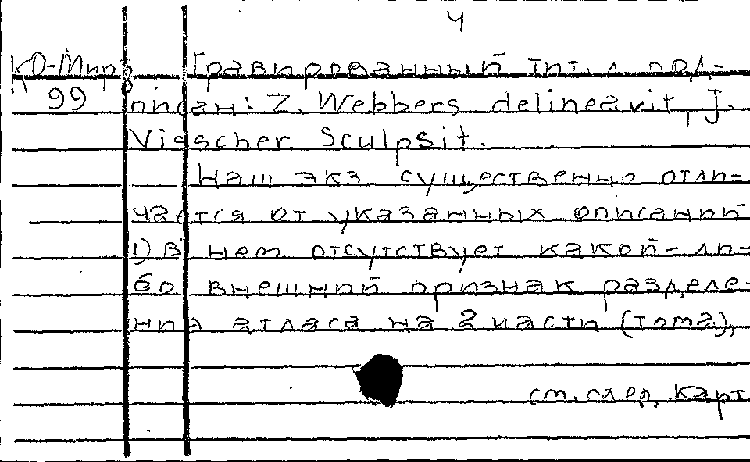 4
КО-Мир Гравированный тит. л. под-
99 писан: Z. Webbers delineavit, J.
Visscher Sculpsit.
Наш экз. существенно отли-
чается от указанных описаний
1) В нем отсутствует какой-ли-
бо внешний признак разделе-
ния атласа на 2 части (тома),
см. след. карт